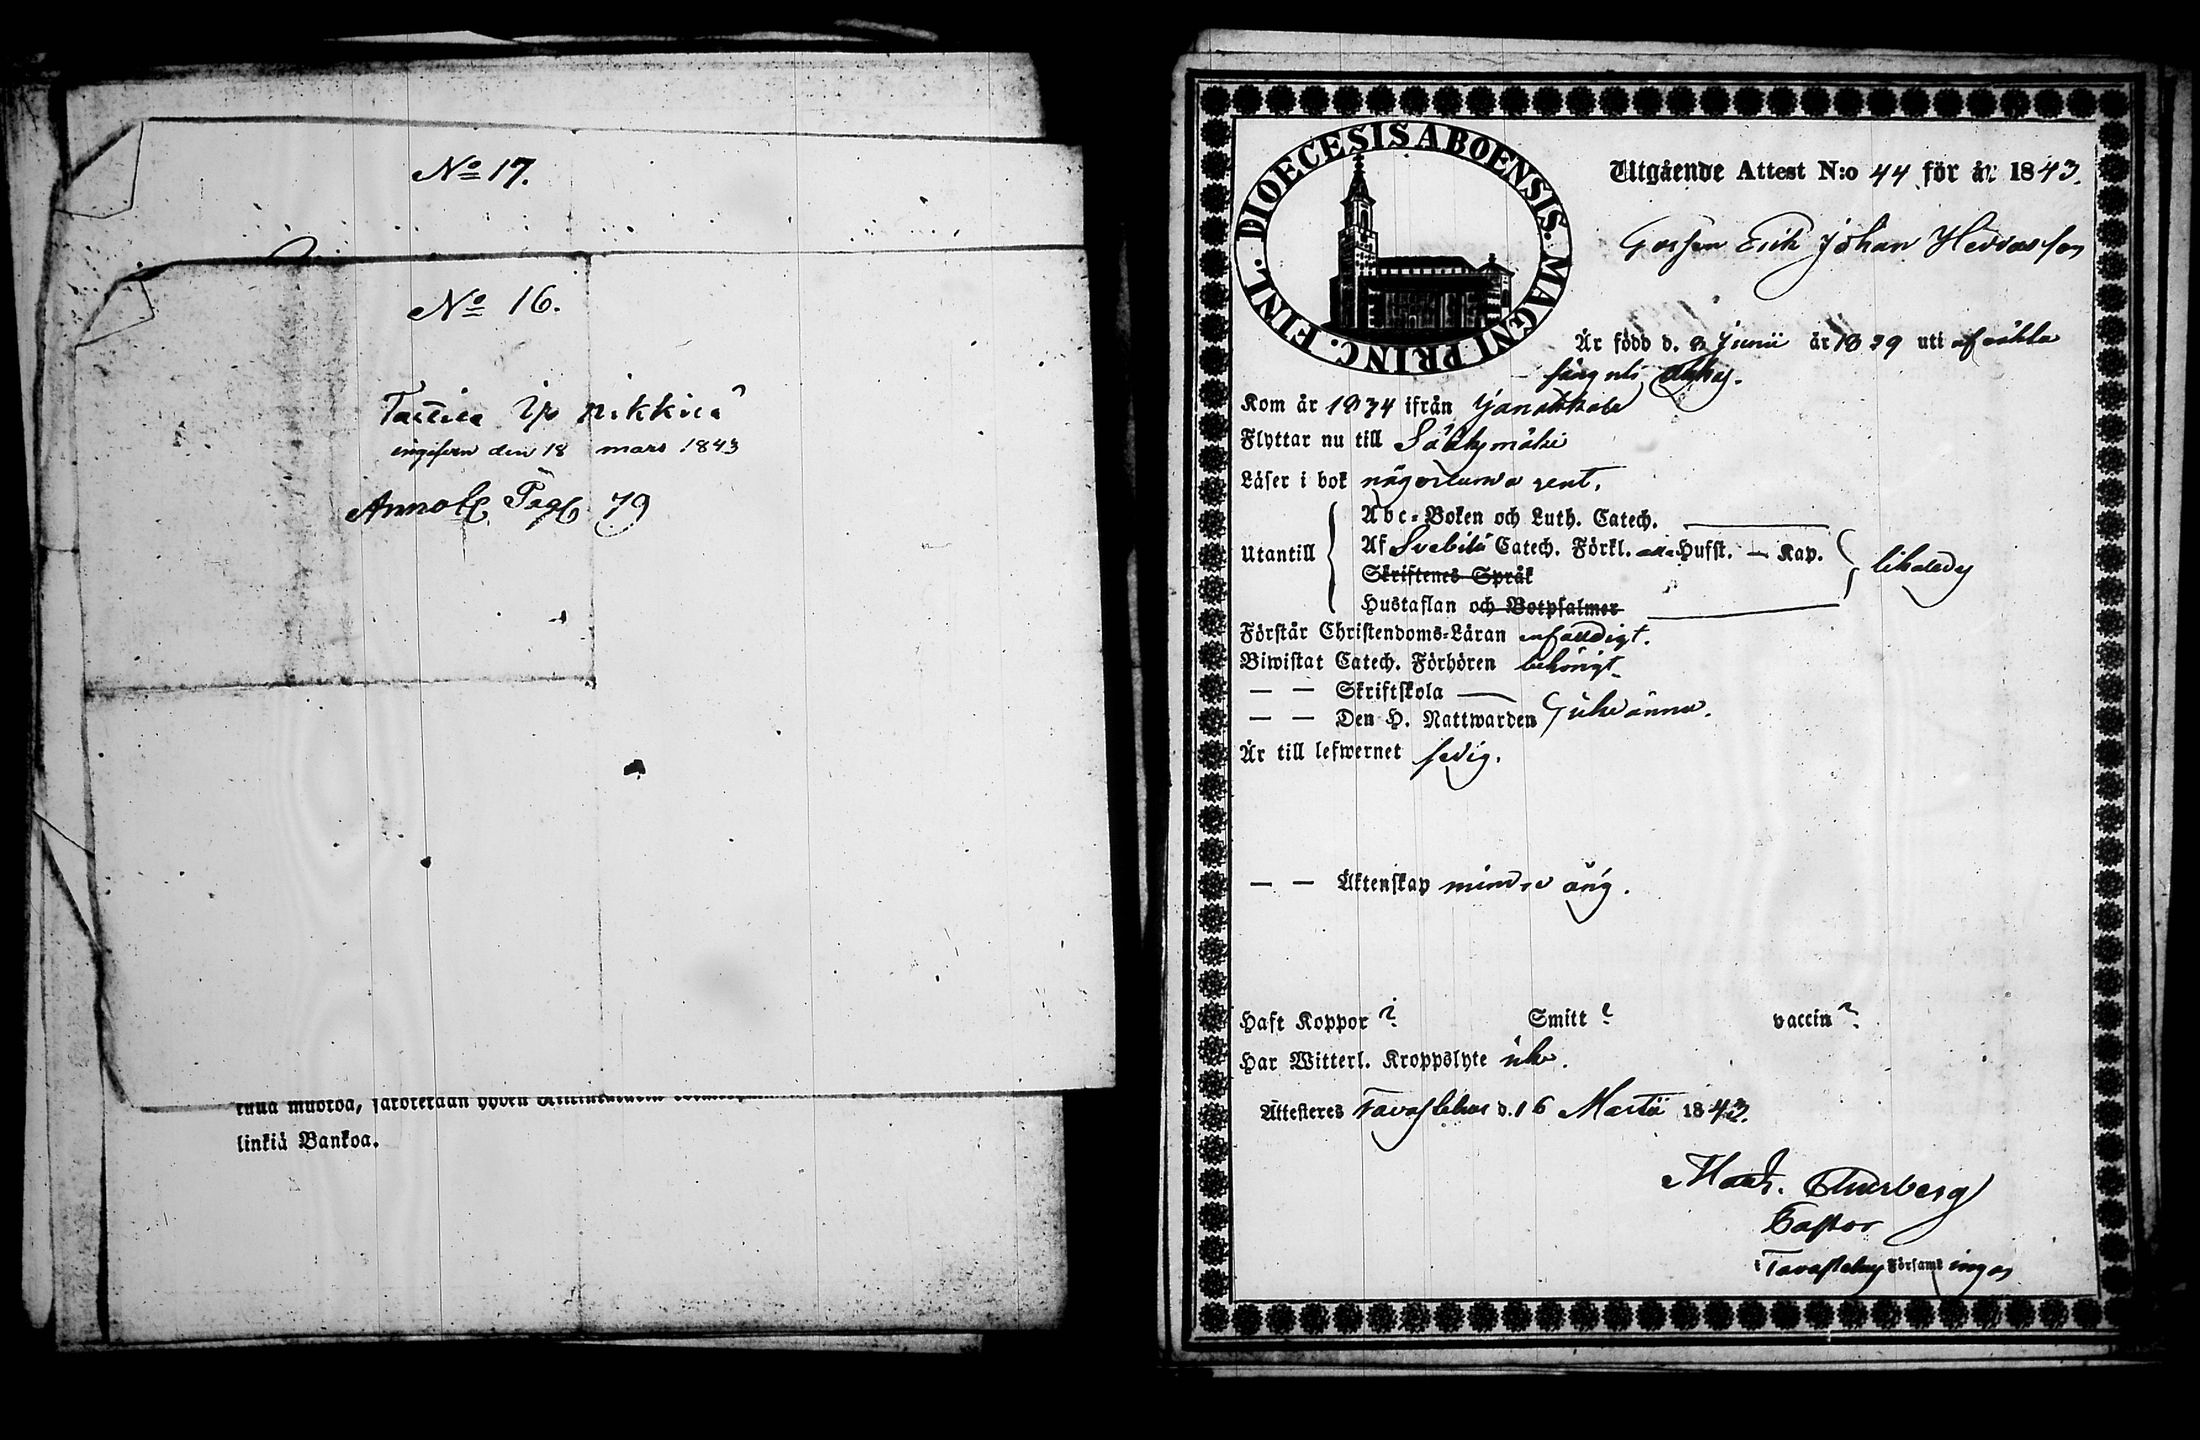 No 17.
No 16.
Nikkilä
den 18 mars 1843
Pag 79
linkiä Bankoa.
DIOECESIS ABOENSIS. MAGNI PRINC. FINL.
Utgående Attest N:o 44 för år 1843.
Gossen Erik Johan
Är född d. 3 Junii år 1829 uti af äkta
säng uti
Kom år 1834 ifrån Janakkala
Flyttar nu till Sääksmäki
Läser i bok någorlunda rent.
Abc-Boken och Luth. Catech.
Utantill
Af Svebilii Catech. Förkl. alla Hufst. — Kap.
likaledes
Skriftenes Språk
Hustaflan och Botpsalmer
Förstår Christendoms-Läran enfaldigt.
Biwistat Catech. Förhören behörigt
— — Skriftskola
— — Den H. Nattwarden icke ännu.
Är till lefwernet sedig.
— — Äktenskap minderårig.
Haft Koppor ? Smitt ? vaccin ?
Har Witterl. Kroppslyte icke.
Attesteres Tavastehus d. 16 Martii 1843.
Pastor
i Tavastehus Församlingar